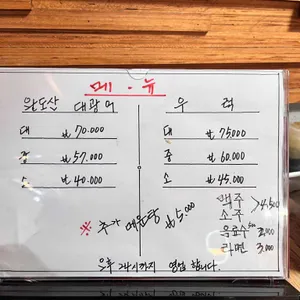 메 · 뉴
완도산 대광어
대 ₩ 70.000
중 ₩ 57.000
소 ₩ 40.000
우 럭
대 ₩ 75000
중 ₩ 60.000
소 ₩ 45.000
※ 추가 매운탕 ₩5,000
맥주
소주 > 4,500
음료수
라면 3,000
오후 24시까지 영업 합니다.